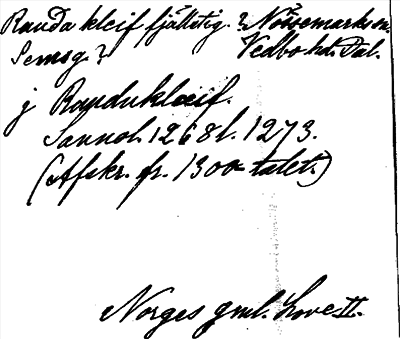 Rauda kleif fjälletig. ? Nössemarks sn.
Semsg. ? Vedbo hd. Dal.
j Raudukleif.
Sannol. 1268 l. 1273.
(Afskr. fr. 1300-talet.)
Norges gml. Love II.